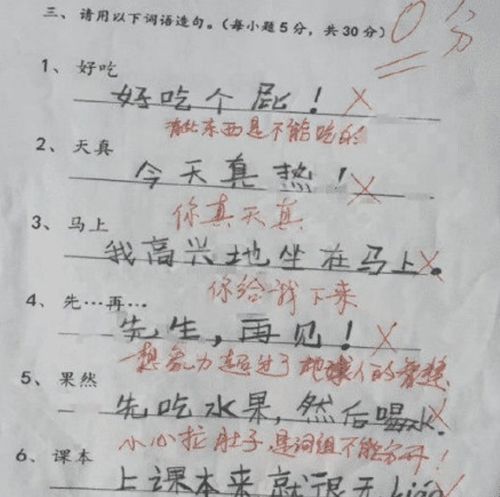 三、请用以下词语造句。(每小题5分，共30分) 0分
1、好吃
好吃个屁！×
有些东西是不能吃的
2、天真
今天真热！×
你真天真
3、马上
我高兴地坐在马上。×
你给我下来
4、先…再…
先生，再见！×
想象力超过了地球人的智慧
5、果然
先吃水果，然后喝水。×
小心拉肚子，是词组不能分开！
6、课本
上课本来就很无